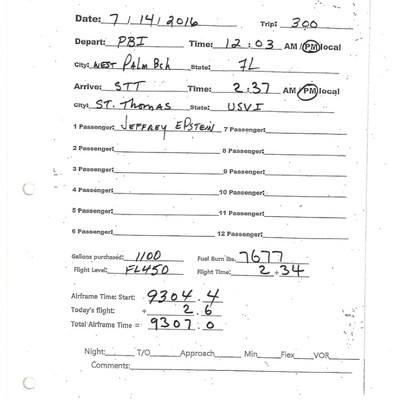 Date: 7/14/2016 Trip: 300
Depart: PBI Time: 12:03 AM/PM local
City: WEST PALM BCH State: FL
Arrive: STT Time: 2:37 AM/PM local
City: ST. THOMAS State: USVI
1 Passenger: JEFFREY EPSTEIN 7 Passenger:
2 Passenger: 8 Passenger:
3 Passenger: 9 Passenger:
4 Passenger: 10 Passenger:
5 Passenger: 11 Passenger:
6 Passenger: 12 Passenger:
Gallons purchased: 1100 Fuel Burn lbs. 7677
Flight Level: FL450 Flight Time: 2+34
Airframe Time: Start: 9304.4
Today's flight: + 2.6
Total Airframe Time = 9307.0
Night: T/O Approach Min Flex VOR
Comments: